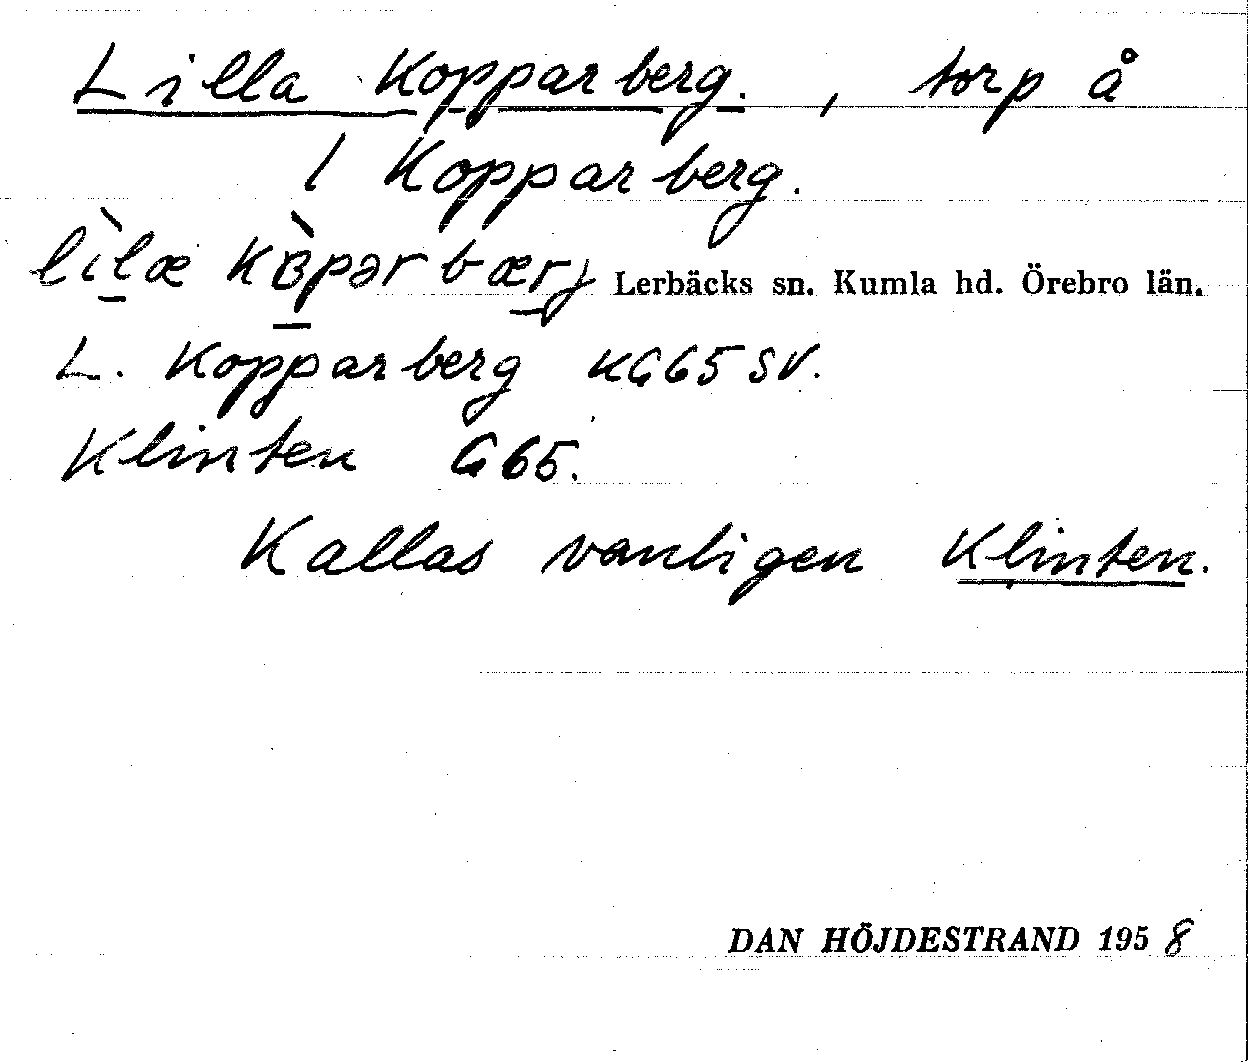 Lilla Kopparberg. , torp å
1 Kopparberg.
Lerbäcks sn. Kumla hd. Örebro län.
L. Kopparberg KG65SV.
Klinten G65.
Kallas vanligen Klinten.
DAN HÖJDESTRAND 1958